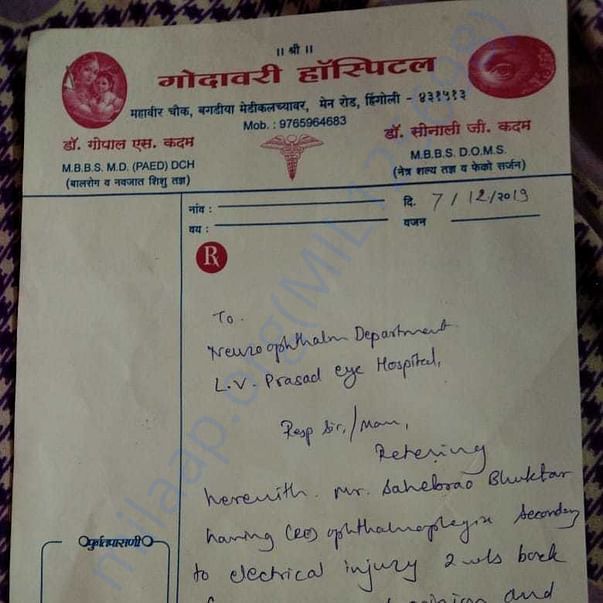 ॥ श्री ॥
गोदावरी हॉस्पिटल
महावीर चौक, बगडीया मेडीकलच्यावर, मेन रोड, हिंगोली - ४३१५१३
Mob. : 9765964683
डॉ. गोपाल एस. कदम
M.B.B.S. M.D. (PAED) DCH
(बालरोग व नवजात शिशु तज्ञ)
डॉ. सोनाली जी. कदम
M.B.B.S. D.O.M.S.
(नेत्र शल्य तज्ञ व फेको सर्जन)
नांव :
दि. 7/12/2019
वय :
वजन
R
To.
Neuroophthalm Department
L.V. Prasad eye Hospital,
Resp Sir,/Mam,
Refering
herewith. Mr. Sahebrao Bhuktar
having (RE) ophthalmoplegia secondary
to electrical injury 2 wks back
opinion and
पुर्वतपासणी
milaap.org(MIL12